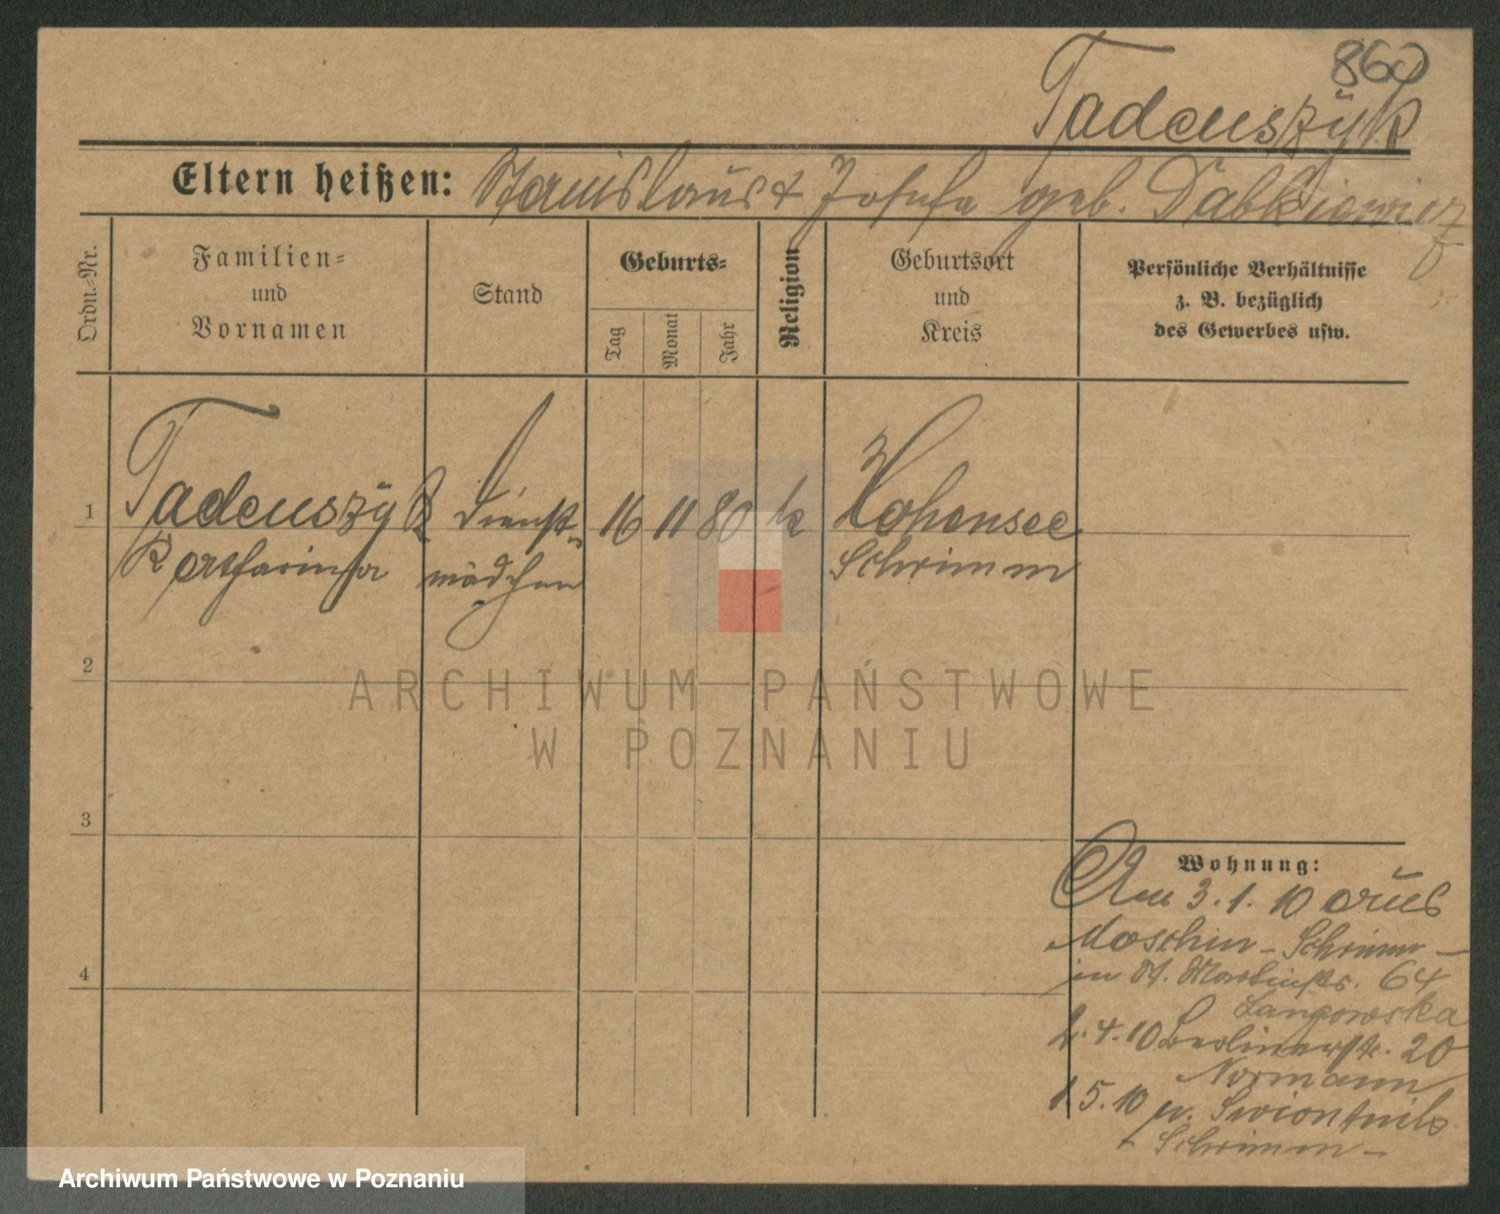 860
Tadeuszÿk
Eltern heißen: Stanislaus & Josefa geb. Dabkiewicz
Ordn.-Nr.
Familien-
und
Vornamen
Stand
Geburts-
Tag
Monat
Jahr
Religion
Geburtsort
und
Kreis
Persönliche Verhältnisse
z. B. bezüglich
des Gewerbes usw.
1
Tadeuszÿk Dienst- 16 11 80 k Hohensee
Katharina mädchen Schrimm
2
3
4
Wohnung:
Am 3.1.10 aus
Moschin - Schrimm -
in St. Martinstr. 64
Langowska
2.4.10 Berlinerstr. 20
Normann
1.5.10 n.
Schrimm -
ARCHIWUM PAŃSTWOWE
W POZNANIU
Archiwum Państwowe w Poznaniu